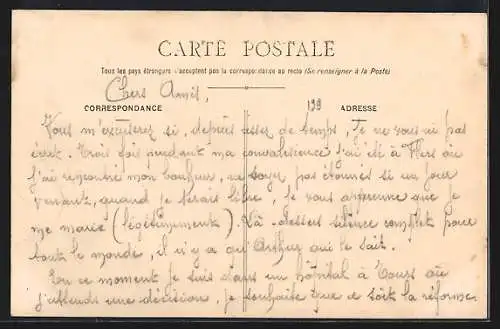 CARTE POSTALE
Tous les pays étrangers n'acceptent pas la correspondance au recto (Se renseigner à la Poste)
Chers Amis,
CORRESPONDANCE
139
ADRESSE
Vous m'excuserez si, depuis assez de temps, je ne vous ai pas
écrit. Trois fois pendant ma convalescence j'ai été à Flers où
j'ai rencontré mon bonheur, ne soyez pas étonnés si un jour
venant, quand je serais libre, je vous apprenne que je
me marie (légitimement). Là-dessus silence complet pour
tout le monde, il n'y a qu'Arthur qui le sait.
En ce moment je suis dans un hôpital à Tours où
j'attends une décision, je souhaite que ce soit la réforme.